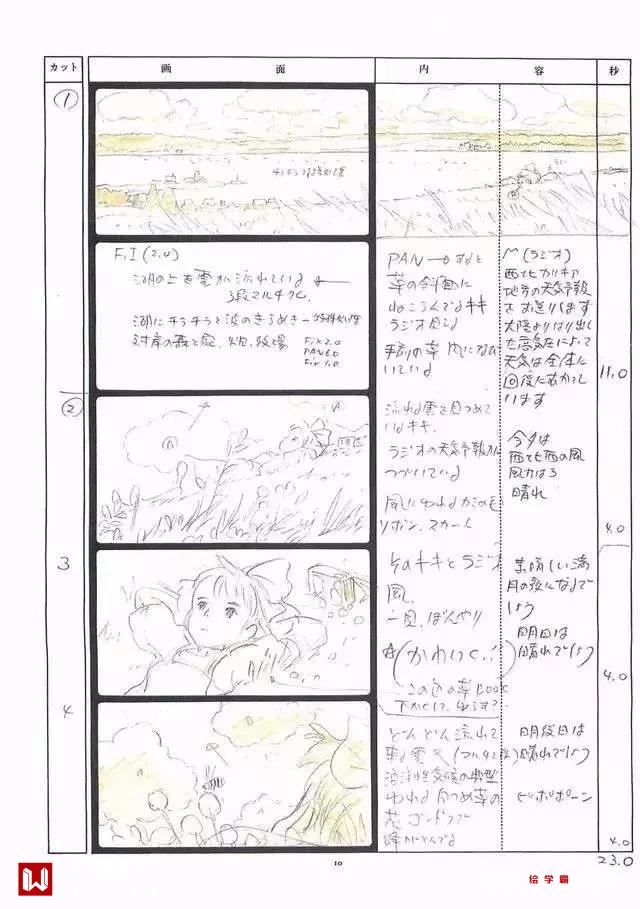 カット 画面 内容 秒
①
F.I (2.0)
湖の上を雲が流れている
3段マルチクミ
湖にチラチラと波のきらめき
対岸の森と 牧場
Fix 2.0
PAN 6.0
Fix 1.0
PAN すると
草の斜面に
ねころんでるキキ
ラジオ
手前の草 風になび
いている
(ラジオ)
西北カリキア
地方の天気予報
をお送りします
大陸よりはり出し
た高気圧によって
天気は全体に
回復にむかって
います
11.0
②
A
流れる雲を見つめて
いるキキ
ラジオの天気予報が
つづいている
風にゆれるカミの毛
リボン、スカート
今夕は
西と北西の風
風力は3
晴れ
4.0
3
そのキキとラジオ
風、
一見、ぼんやり
(かわいく…)
この色の草BOOK
素晴しい満
月の夜になるで
しょう
明日は
晴れでしょう
4.0
4
どんどん流れて
海洋性気候の典型
ゆれる つめ草の
花
蜂がとんでる
明後日は
晴れでしょう
ピポポーン
4.0
10
23.0
绘学霸